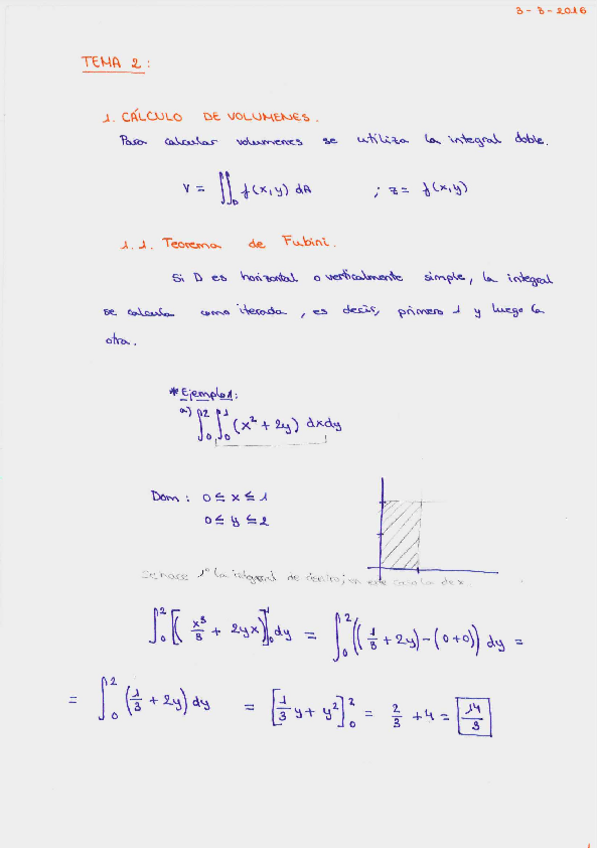 3-3-2016
TEMA 2:
1. CÁLCULO DE VOLUMENES.
Para calcular volumenes se utiliza la integral doble.
V = ∬_D f(x,y) dA ; z = f(x,y)
1.1. Teorema de Fubini.
Si D es horizontal o verticalmente simple, la integral
se calcula como iterada, es decir, primero 1 y luego la
otra.
* Ejemplo 1:
a) ∫_0^2 ∫_0^1 (x² + 2y) dxdy
Dom: 0 ≤ x ≤ 1
0 ≤ y ≤ 2
Se hace 1º la integral de dentro, en este caso la de x.
∫_0^2 [(x³/3 + 2yx)]_0^1 dy = ∫_0^2 ((1/3 + 2y) - (0+0)) dy =
= ∫_0^2 (1/3 + 2y) dy = [1/3 y + y²]_0^2 = 2/3 + 4 = 14/3